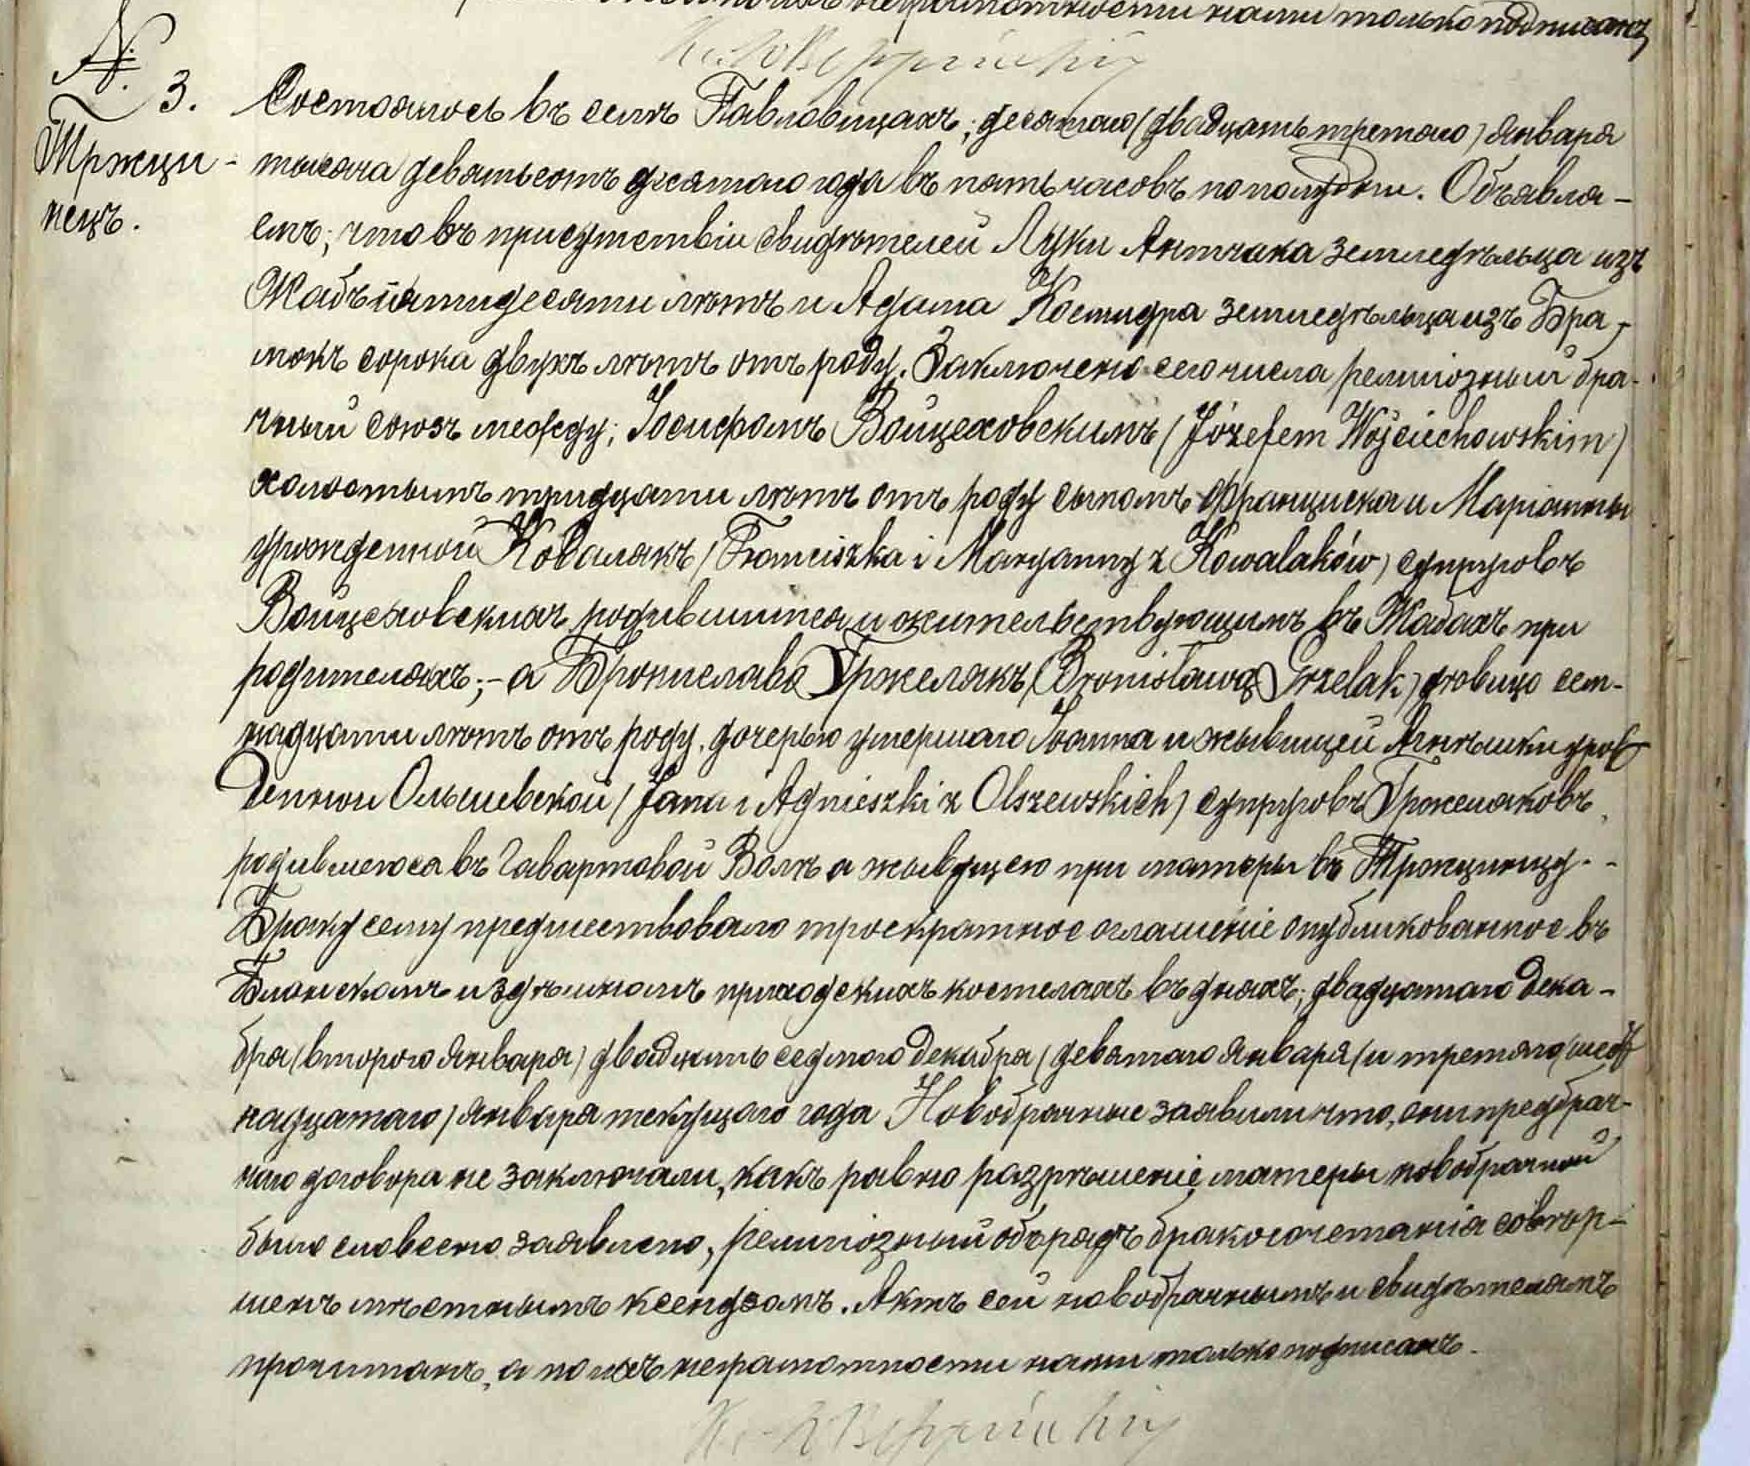 неграмотности нами только подписанъ
№ 3.
Тржци-
нецъ.
Состоялось въ селѣ Павловицахъ; десятаго (двадцать третяго) Января
тысяча девятьсотъ десятаго года въ пять часовъ по полудни. Объявля-
емъ; что въ присутствіи свидѣтелей Луки Антчака земледѣльца изъ
Жабъ пятидесяти лѣтъ и Адама Костидра земледѣльца изъ Бра-
мокъ сорока двухъ лѣтъ отъ роду. Заключено сего числа религіозный бра-
чный союзъ между; Іосифомъ Войцеховскимъ (Józefem Wojciechowskim)
холостымъ тридцати лѣтъ отъ роду сыномъ Франциска и Маріанны
урожденной Ковалякъ (Franciszka i Maryanny z Kowalaków) супруговъ
Войцеховскихъ родившимся и жительствующимъ въ Жабахъ при
родителяхъ; - а Брониславо Гржелякъ (Bronisławą Grzelak) дѣвицо сем-
надцати лѣтъ отъ роду, дочерью умершаго Іоанна и жывщей Агнѣшки уро
денной Ольшевской (Jana i Agnieszki z Olszewskich) супруговъ Гржеляковъ,
родившеюся въ Гавартовой Волѣ а жывущею при матеры въ Тржцинцу. -
Браку сему предшествовало троекратное оглашеніе опубликованное въ
Блонскомъ и здѣшномъ приходскихъ костелахъ въ дняхъ; двадцатаго Дека-
бря (второго Января) двадцать седмого Декабря (девятаго Января) и третяго (шест
надцатаго) Января текущаго года Новобрачные заявили что, они предбрач-
наго договора не заключали, какъ равно разрѣшеніе матеры новобрачной
было словесно заявлено, религіозный обърядъ бракосочетанія совѣр-
шенъ мѣстнымъ ксендзомъ. Актъ сей новобрачнымъ и свидѣтелямъ
прочитанъ, а по ихъ неграмотности нами только подписанъ.